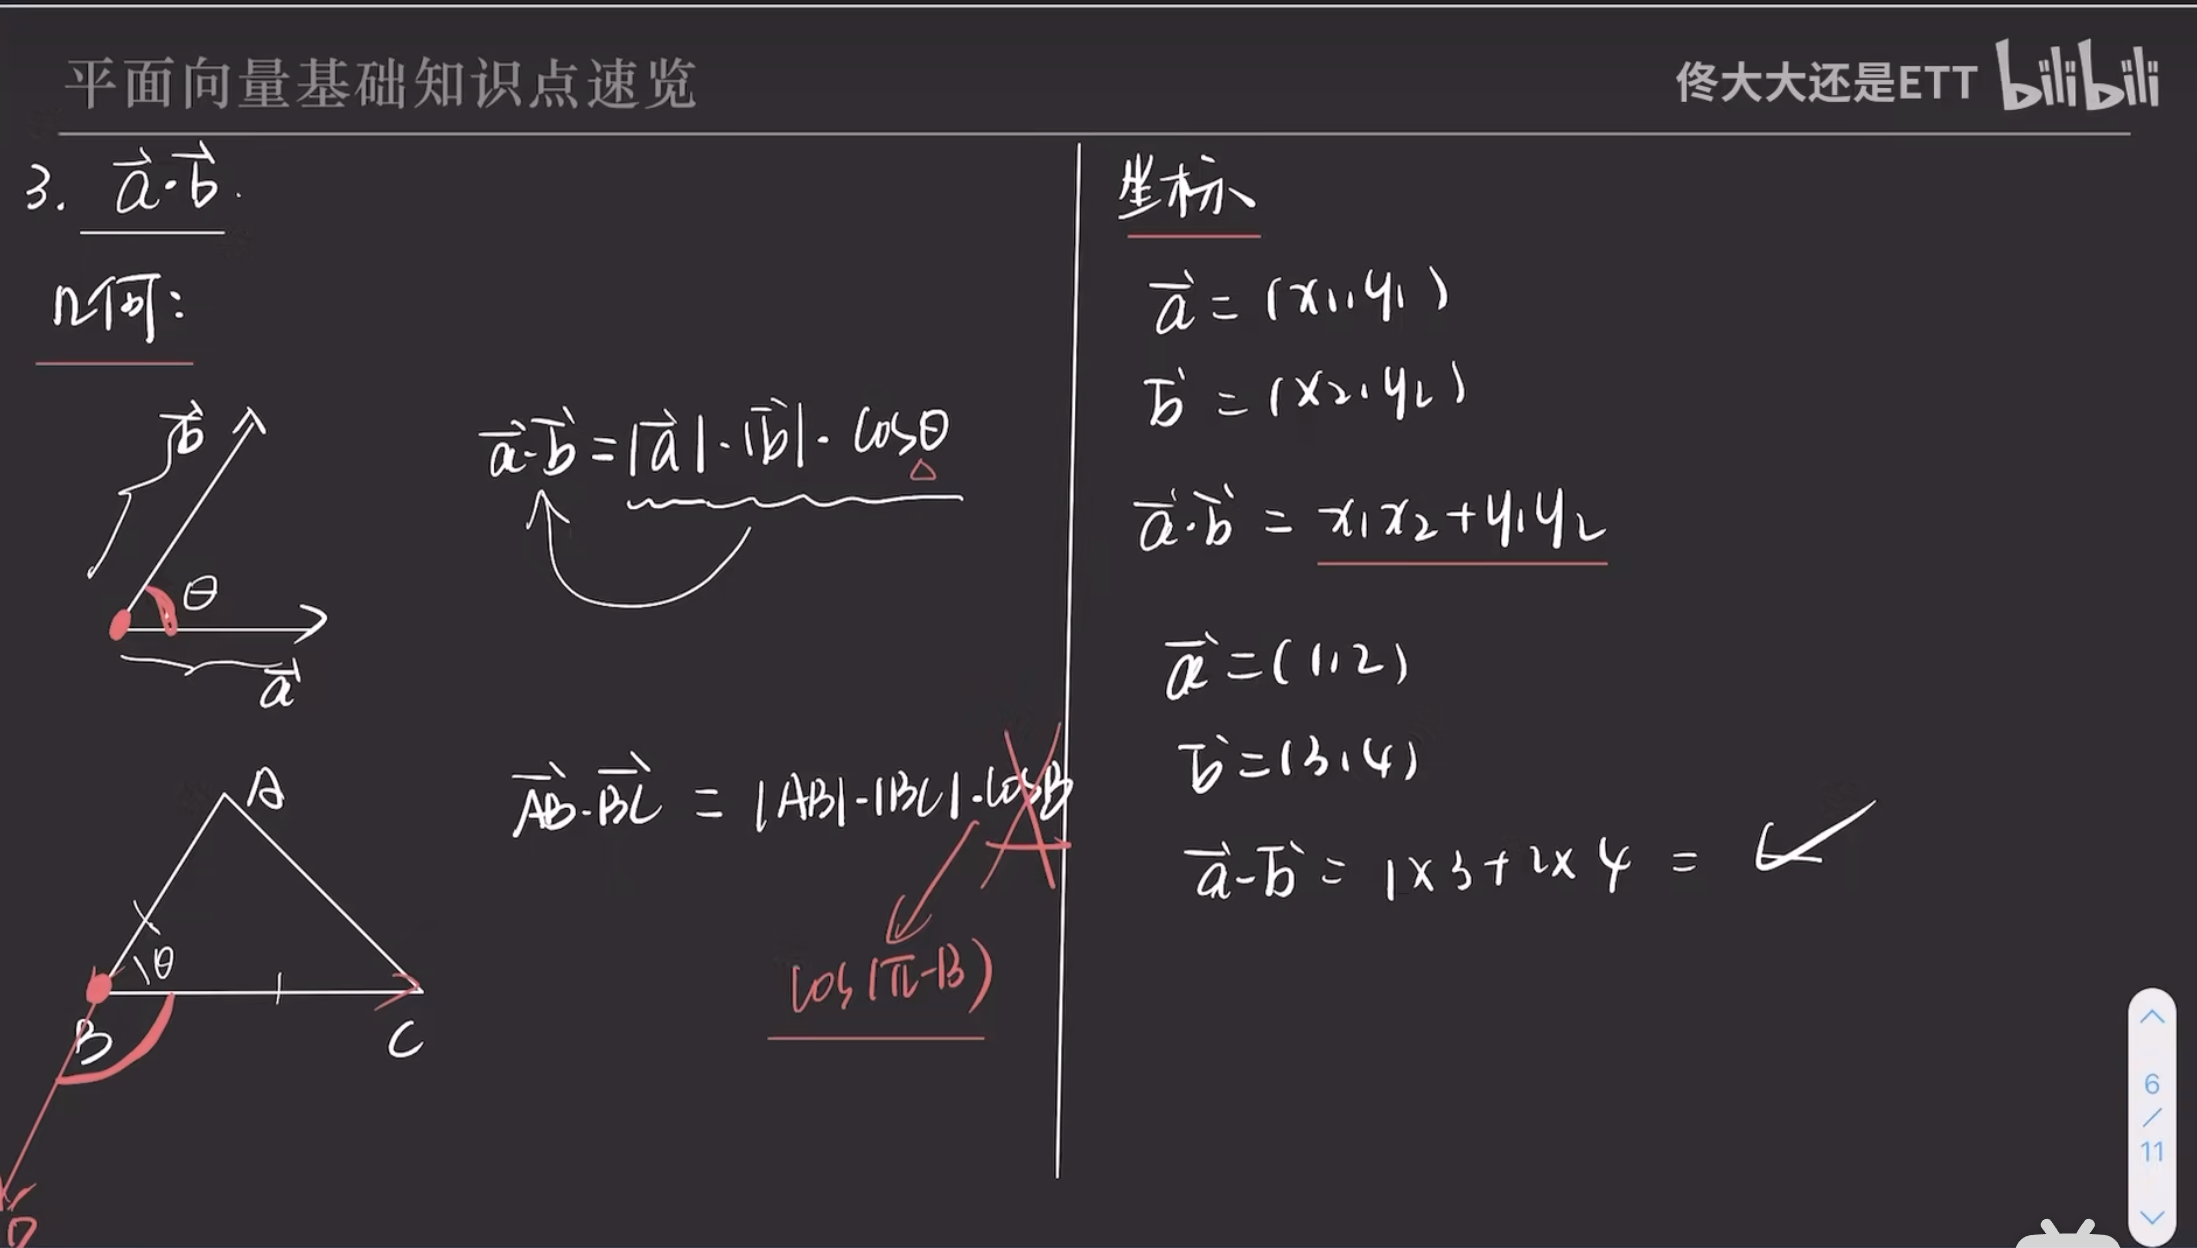 平面向量基础知识点速览
佟大大还是ETT bilibili
3. a⃗·b⃗.
几何:
b⃗
θ
a⃗
a⃗·b⃗=|a⃗|·|b⃗|·cosθ
A
θ
B
C
D
AB⃗·BC⃗ = |AB|·|BC|·cosB
cos(π-B)
坐标
a⃗=(x₁,y₁)
b⃗=(x₂,y₂)
a⃗·b⃗ = x₁x₂+y₁y₂
a⃗=(1,2)
b⃗=(3,4)
a⃗·b⃗ = 1×3+2×4 =
6
/
11